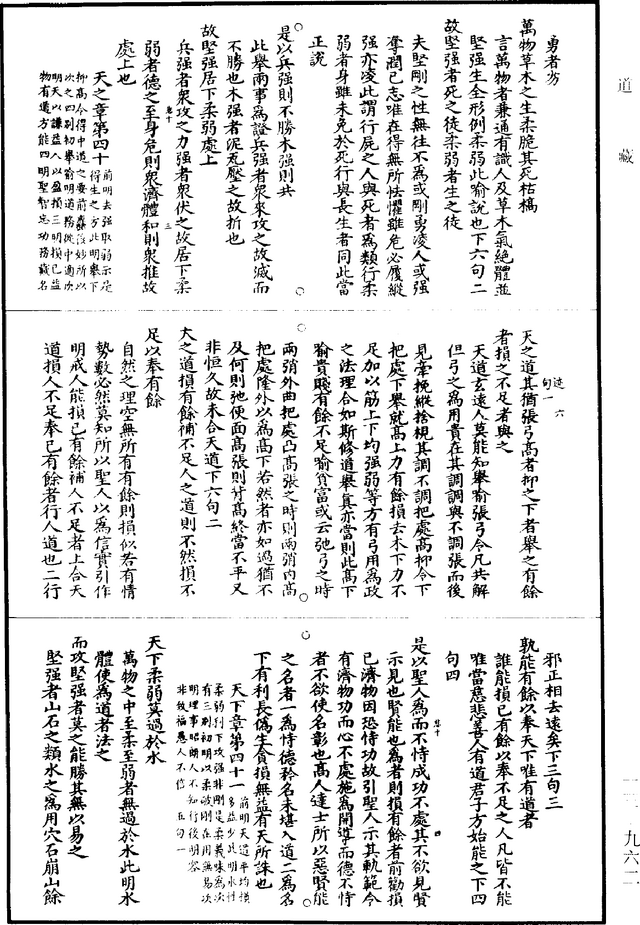 道藏
勇者勇
萬物草木之生柔脆其死枯槁
言萬物者兼通有識人及草木氣絕體並
堅强生全形例柔弱此喻說也下六句二
故堅强者死之徒柔弱者生之徒
夫堅剛之性無往不爲或剛勇凌人或强
奪潤己志唯在得無所怯懼雖危必履縱
强亦凌此謂行屍之人與死者爲類行柔
弱者身雖未免於死行與長生者同此當
正說
是以兵强則不勝木强則共
此舉兩事爲證兵强者衆來攻之故滅而
不勝也木强者泥瓦壓之故折也
故堅强居下柔弱處上
兵强者衆攻之力强者衆伏之故居下柔
弱者德之至身危則衆濟體和則衆推故
處上也
天之章第四十
天之道其猶張弓高者抑之下者舉之有餘
者損之不足者與之
天道玄遠人莫能知舉喻張弓令凡共解
但弓之爲用貴在其調調與不調張而後
見毫挽縱捨棿其調不調把處高抑令下
把處下舉就高上力有餘損去木下力不
足加以筋上下均强弱等方有弓用爲政
之法理合如斯修道舉眞亦當則此高下
喻貴賤有餘不足喻貧富或云弛弓之時
兩弰外曲把處凸高張之時則兩弰內高
把處隆外以爲高下若然者亦如過猶不
及何則弛便面高張則背高終當不平又
非恒久故未合天道下六句二
天之道損有餘補不足人之道則不然損不
足以奉有餘
自然之理空無所有有餘則損似若有情
勢數必然莫知所以聖人以爲信實引作
明戒人能損己有餘補人不足者上合天
道損人不足奉己有餘者行人道也二行
邪正相去遠矣下三句三
孰能有餘以奉天下唯有道者
誰能損己有餘以奉不足之人凡皆不能
唯當慈悲善人有道君子方始能之下四
句四
是以聖人爲而不恃成功不處其不欲見賢
示見也賢能也爲者則損有餘者前勸損
己濟物因恐恃功故引聖人示其軌範今
有濟物功而心不處施爲開導而德不恃
者不欲使名彰也高人達士所以惡賢能
之名者一爲恃德矜名未堪入道二爲名
下有利長僞生貪損無益有天所誅也
天下章第四十一
天下柔弱莫過於水
萬物之中至柔至弱者無過於水此明水
體使爲道者法之
而攻堅强者莫之能勝其無以易之
堅强者山石之類水之爲用穴石崩山餘